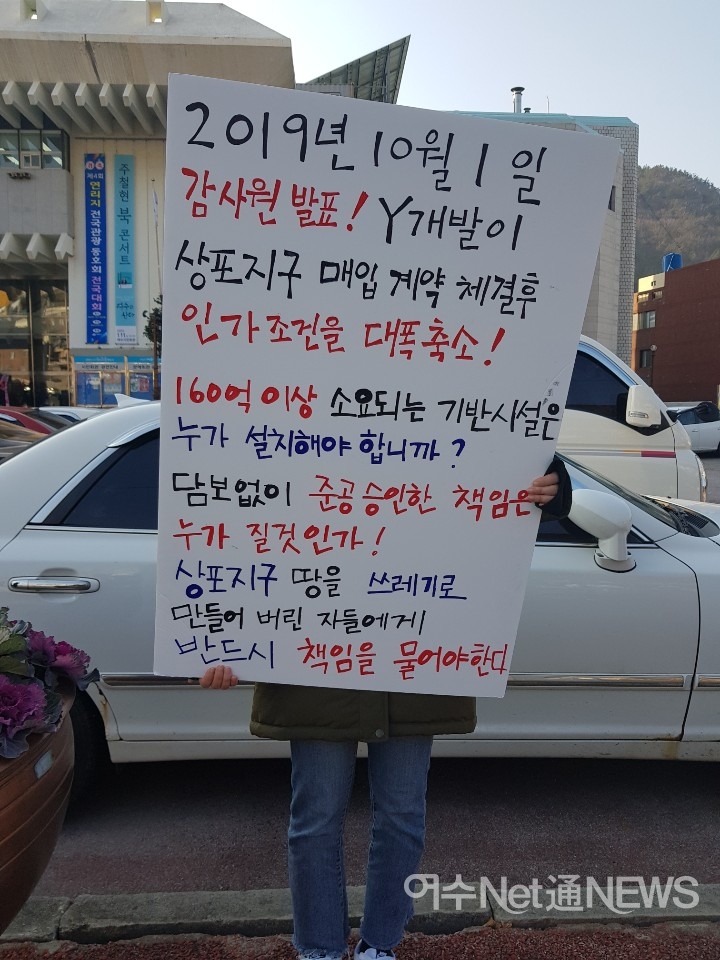 2019년 10월 1일
감사원 발표! Y개발이
상포지구 매입 계약 체결후
인가조건을 대폭축소!
160억 이상 소요되는 기반시설은
누가 설치해야 합니까?
담보없이 준공승인한 책임은
누가 질것인가!
상포지구 땅을 쓰레기로
만들어 버린 자들에게
반드시 책임을 물어야한다
제4회 연리지 전국관광 동호회 전국대회
주철현 북 콘서트
여수Net通NEWS